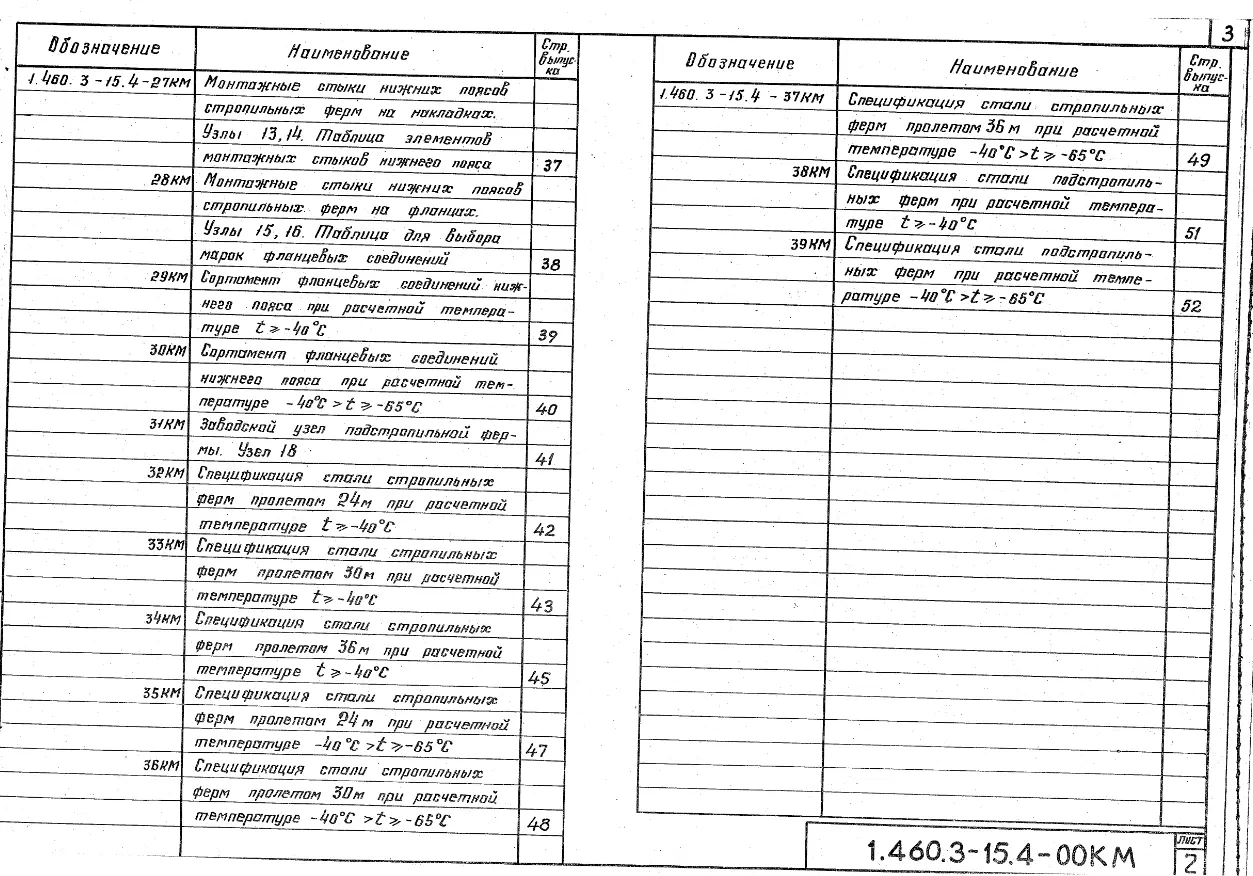 3
Обозначение Наименование Стр. выпус-ка
1.460.3-15.4-27КМ Монтажные стыки нижних поясов
стропильных ферм на накладках.
Узлы 13,14. Таблица элементов
монтажных стыков нижнего пояса 37
28КМ Монтажные стыки нижних поясов
стропильных ферм на фланцах.
Узлы 15, 16. Таблица для выбора
марок фланцевых соединений 38
29КМ Сортамент фланцевых соединений ниж-
него пояса при расчетной темпера-
туре t ⩾ -40°С 39
30КМ Сортамент фланцевых соединений
нижнего пояса при расчетной тем-
пературе -40°С > t ⩾ -65°С 40
31КМ Заводской узел подстропильной фер-
мы. Узел 18 41
32КМ Спецификация стали стропильных
ферм пролетом 24м при расчетной
температуре t ⩾ -40°С 42
33КМ Спецификация стали стропильных
ферм пролетом 30м при расчетной
температуре t ⩾ -40°С 43
34КМ Спецификация стали стропильных
ферм пролетом 36м при расчетной
температуре t ⩾ -40°С 45
35КМ Спецификация стали стропильных
ферм пролетом 24м при расчетной
температуре -40°С > t ⩾ -65°С 47
36КМ Спецификация стали стропильных
ферм пролетом 30м при расчетной
температуре -40°С > t ⩾ -65°С 48
Обозначение Наименование Стр. выпус-ка
1.460.3-15.4-37КМ Спецификация стали стропильных
ферм пролетом 36м при расчетной
температуре -40°С > t ⩾ -65°С 49
38КМ Спецификация стали подстропиль-
ных ферм при расчетной темпера-
туре t ⩾ -40°С 51
39КМ Спецификация стали подстропиль-
ных ферм при расчетной темпе-
ратуре -40°С > t ⩾ -65°С 52
1.460.3-15.4-00КМ
Лист
2